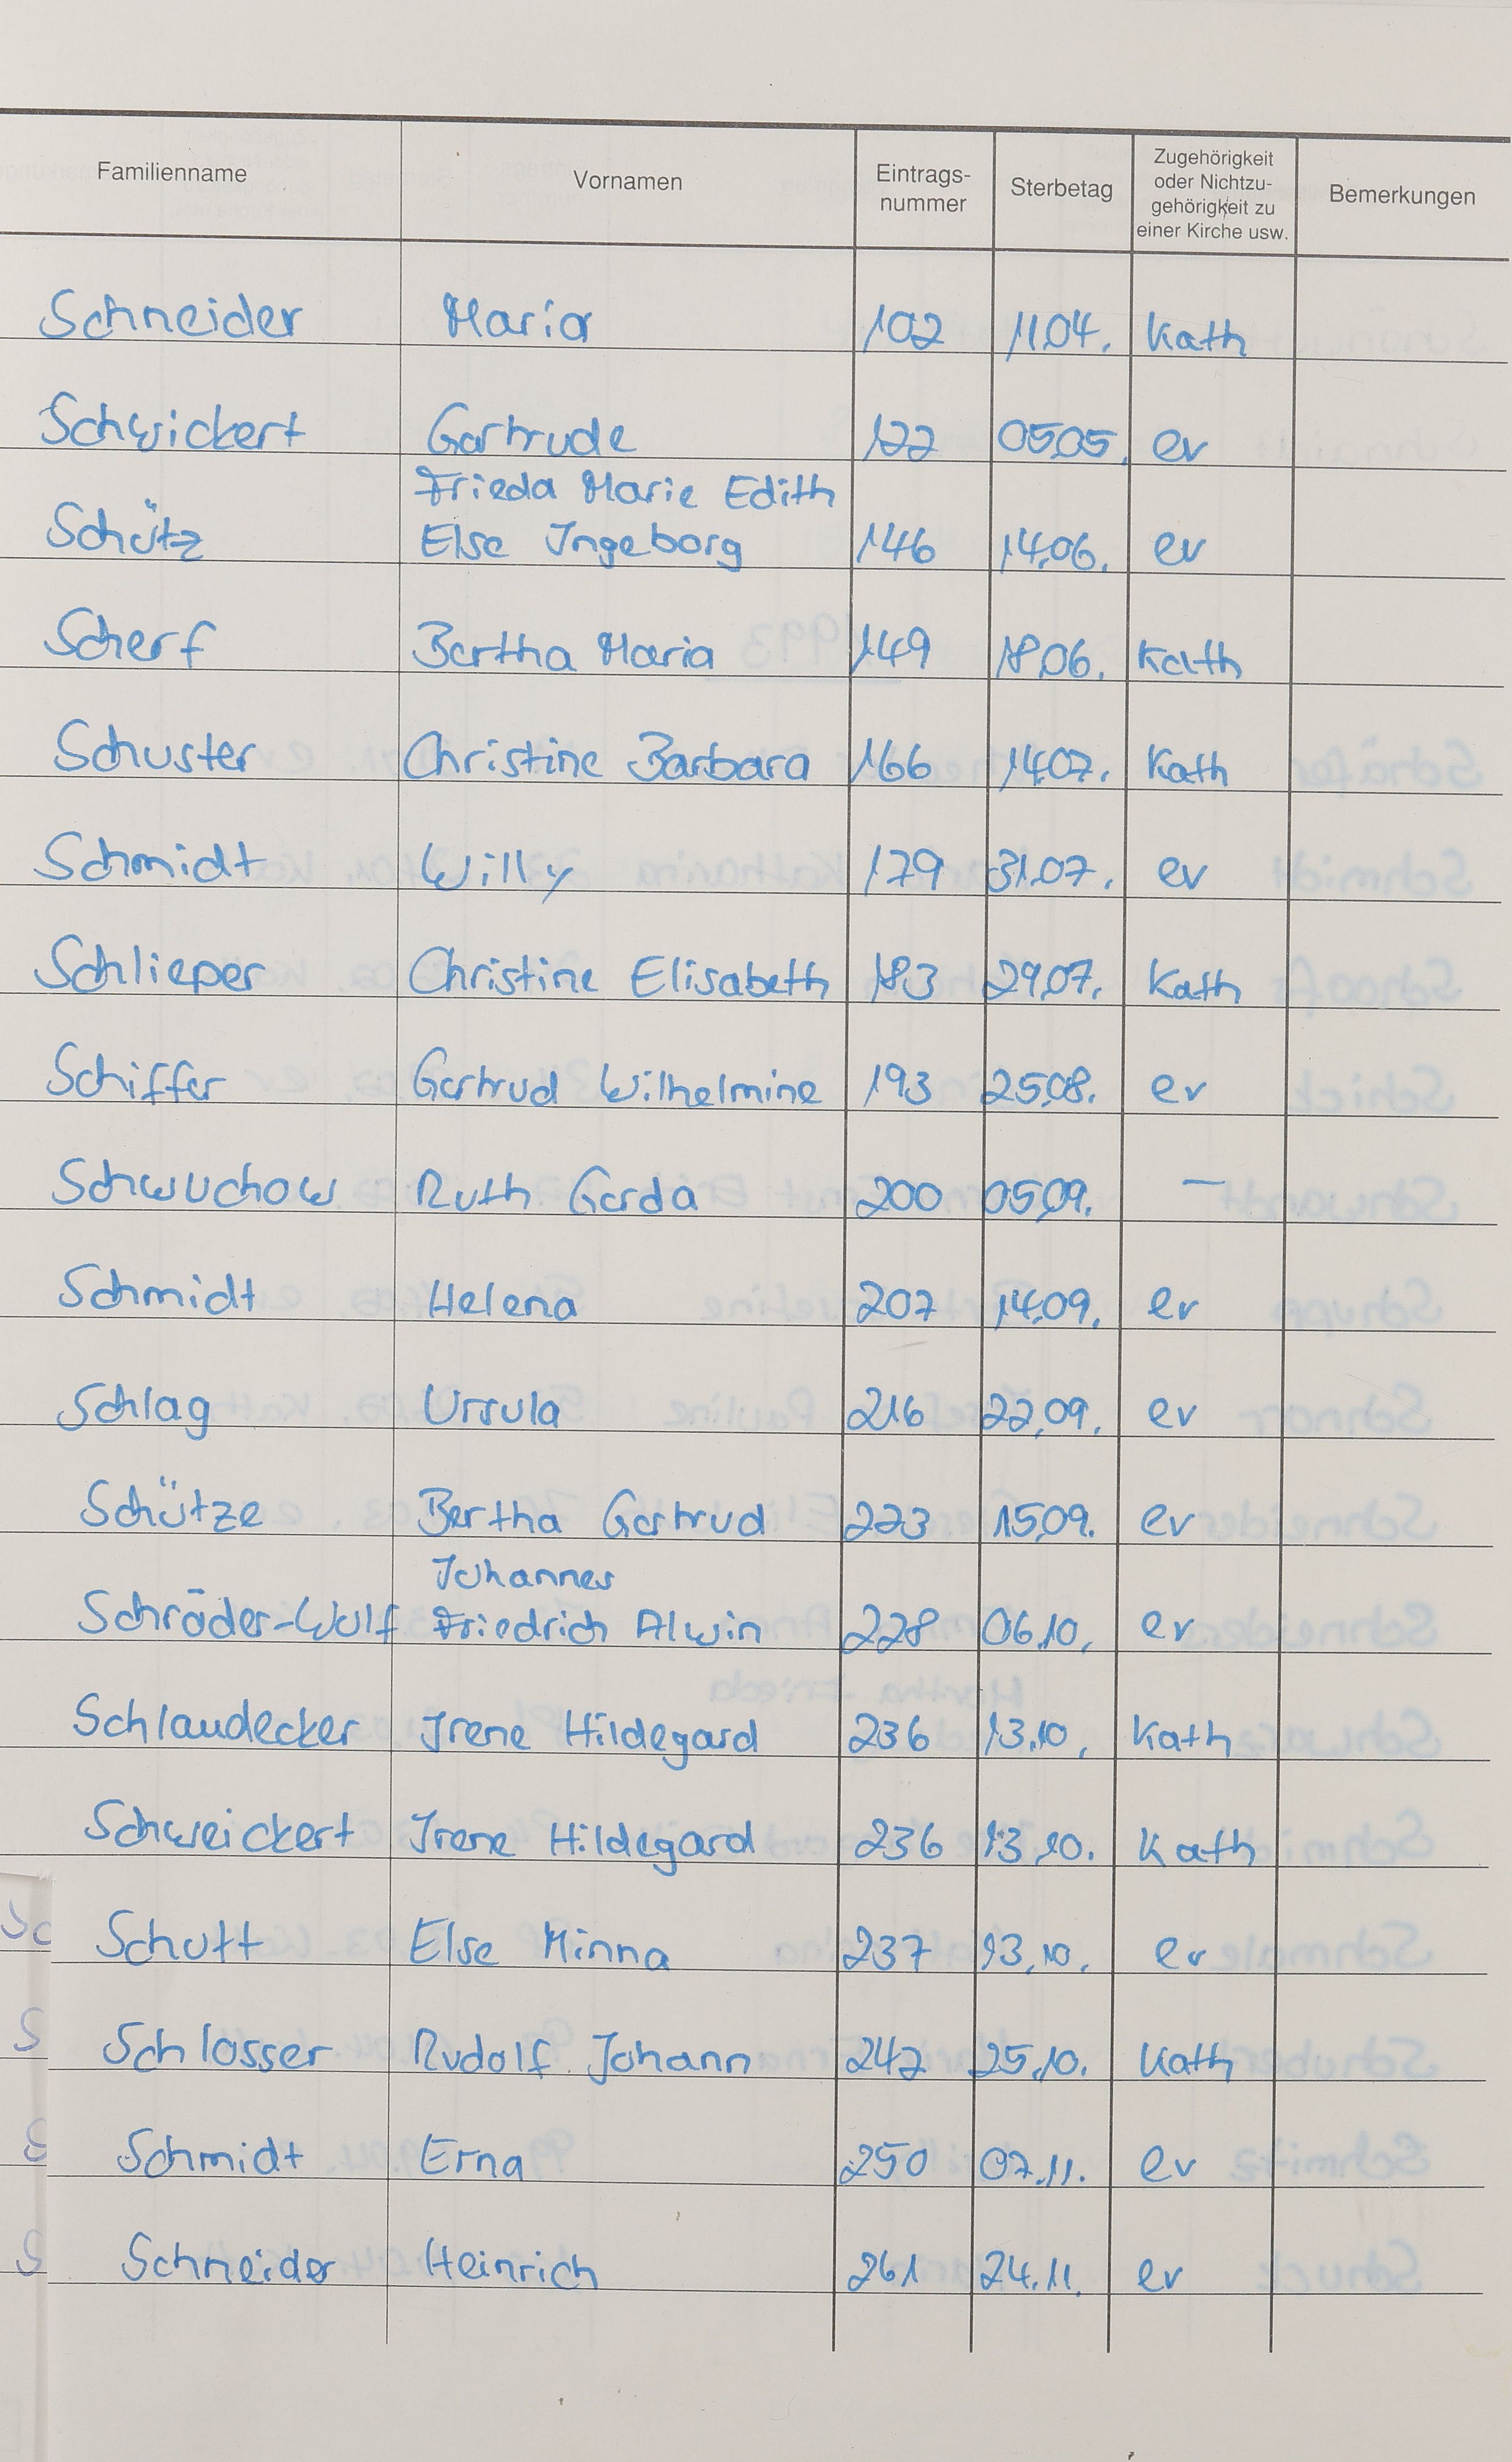 Familienname Vornamen Eintrags-nummer Sterbetag Zugehörigkeit oder Nichtzu-gehörigkeit zu einer Kirche usw. Bemerkungen
Schneider Maria 102 11.04. Kath
Schwickert Gertrude 122 05.05. ev
Frieda Marie Edith
Schütz Else Ingeborg 146 14.06. ev
Scherf Bertha Maria 149 18.06. Kath
Schuster Christine Barbara 166 14.07. Kath
Schmidt Willy 179 31.07. ev
Schlieper Christine Elisabeth 183 29.07. Kath
Schiffer Gertrud Wilhelmine 193 25.08. ev
Schwuchow Ruth Gerda 200 05.09. —
Schmidt Helena 207 14.09. ev
Schlag Ursula 216 22.09. ev
Schütze Bertha Gertrud 223 15.09. ev
Johannes
Schröder-Wulf Friedrich Alwin 228 06.10. ev
Schlaudecker Irene Hildegard 236 13.10. Kath
Schweickert Irene Hildegard 236 13.10. Kath
Schutt Else Minna 237 13.10. ev
Schlosser Rudolf Johann 242 25.10. Kath
Schmidt Erna 250 07.11. ev
Schneider Heinrich 261 24.11. ev